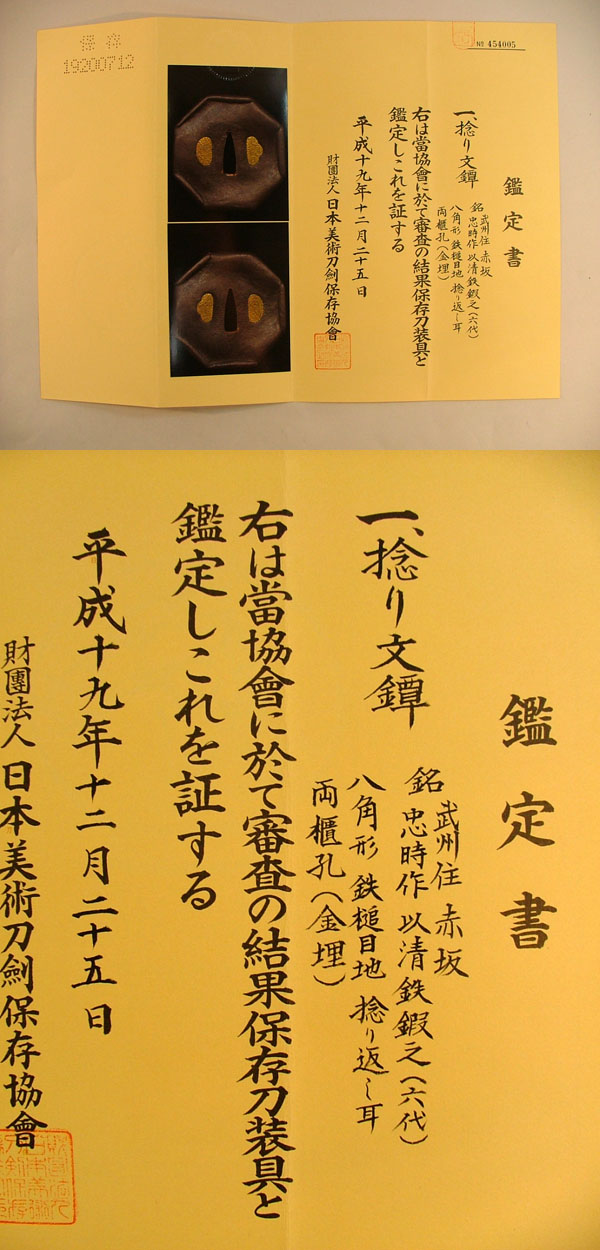 保存
19200712
No 454005
鑑定書
一、捻り文鐔
銘 武州住 赤坂
忠時作 以清鉄鍜之(六代)
八角形 鉄槌目地 捻り返し耳
両櫃孔(金埋)
右は當協會に於て審査の結果保存刀装具と
鑑定しこれを証する
平成十九年十二月二十五日
財團法人日本美術刀劍保存協會
鑑定書
一、捻り文鐔
銘 武州住 赤坂
忠時作 以清鉄鍜之(六代)
八角形 鉄槌目地 捻り返し耳
両櫃孔(金埋)
右は當協會に於て審査の結果保存刀装具と
鑑定しこれを証する
平成十九年十二月二十五日
財團法人日本美術刀劍保存協會